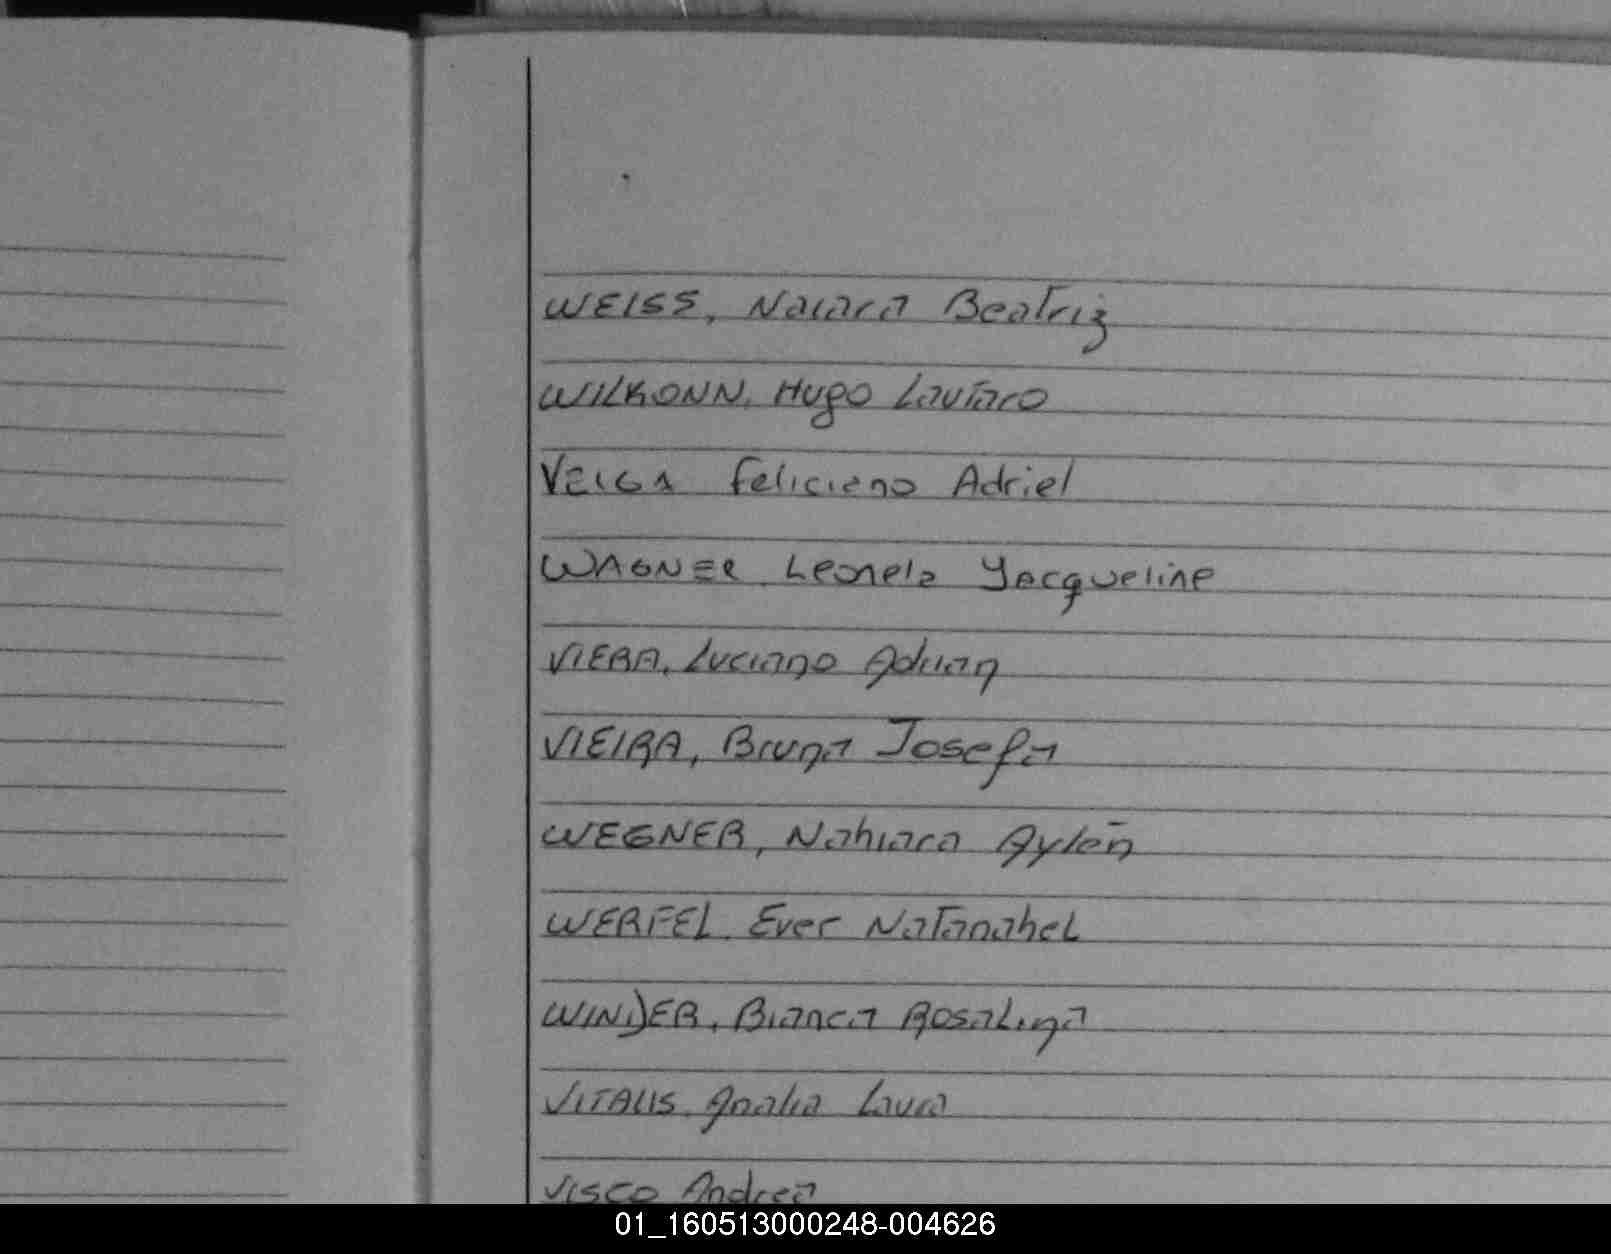 WEISS, Naiara Beatriz
WILKONN, Hugo Lautaro
VEIGA Feliciano Adriel
WAGNER Leonela Yacqueline
VIERA, Luciano Adrian
VIEIRA, Bruna Josefa
WEGNER, Nahiara Aylén
WERFEL, Ever Natanahel
WINDER, Bianca Rosalina
VITALIS, Analia Laura
VISCO Andrea
01_160513000248-004626